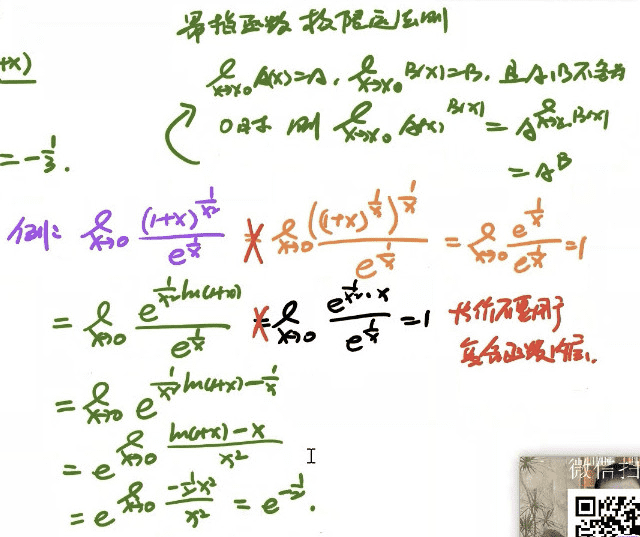 幂指函数极限运算法则
+x)
lim x→x₀ A(x)=A, lim x→x₀ B(x)=B, 且A,B不全为
0时 则 lim x→x₀ A(x)^B(x) = A^(lim x→x₀ B(x))
= -1/3.
= A^B
例: lim x→0 (1+x)^(1/x²) / e^(1/x) = lim x→0 ((1+x)^(1/x))^(1/x) / e^(1/x) = lim x→0 e^(1/x) / e^(1/x) = 1
= lim x→0 e^(1/x² ln(1+x)) / e^(1/x) = lim x→0 e^(1/x²·x) / e^(1/x) = 1 等价不要用于
复合函数内层.
= lim x→0 e^(1/x² ln(1+x) - 1/x)
= e^(lim x→0 (ln(1+x)-x) / x²)
= e^(lim x→0 (-1/2 x²) / x²) = e^(-1/2).
微信扫